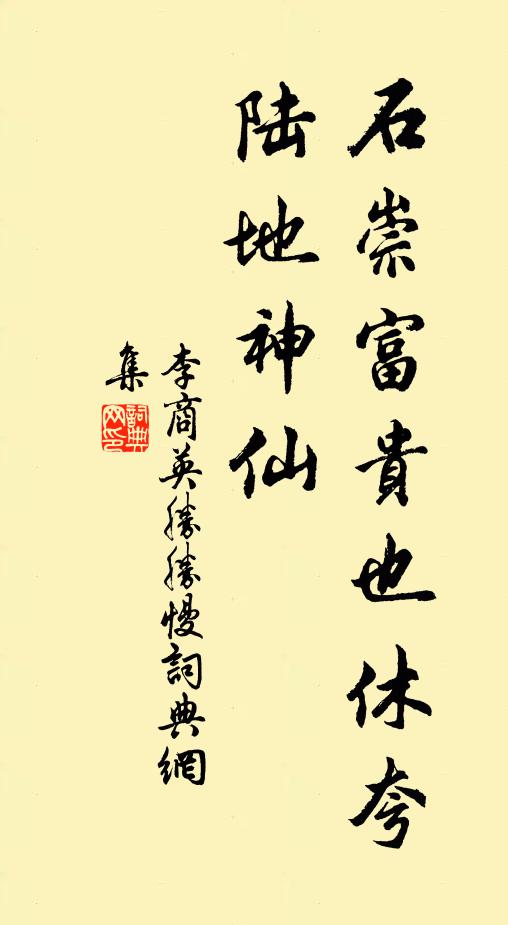 石崇富貴也休夸
陆地神仙
李商英勝勝慢詞典網
集
詞典
网印